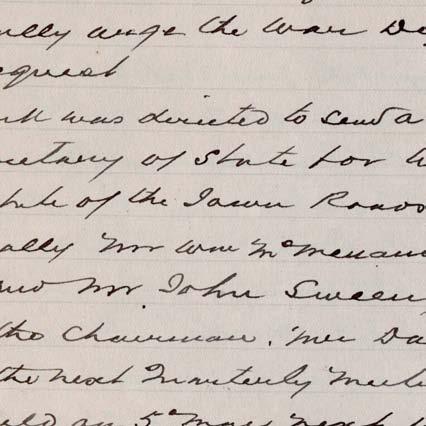 ully urge the War De
equest
rk was directed to send a
cretary of State for W
tute of the Town Roads
ally Mr Wm McMenam
and Mr John Sween
the Chairman. Mr Da
the next Quarterly Meeti
eld on 5th May next